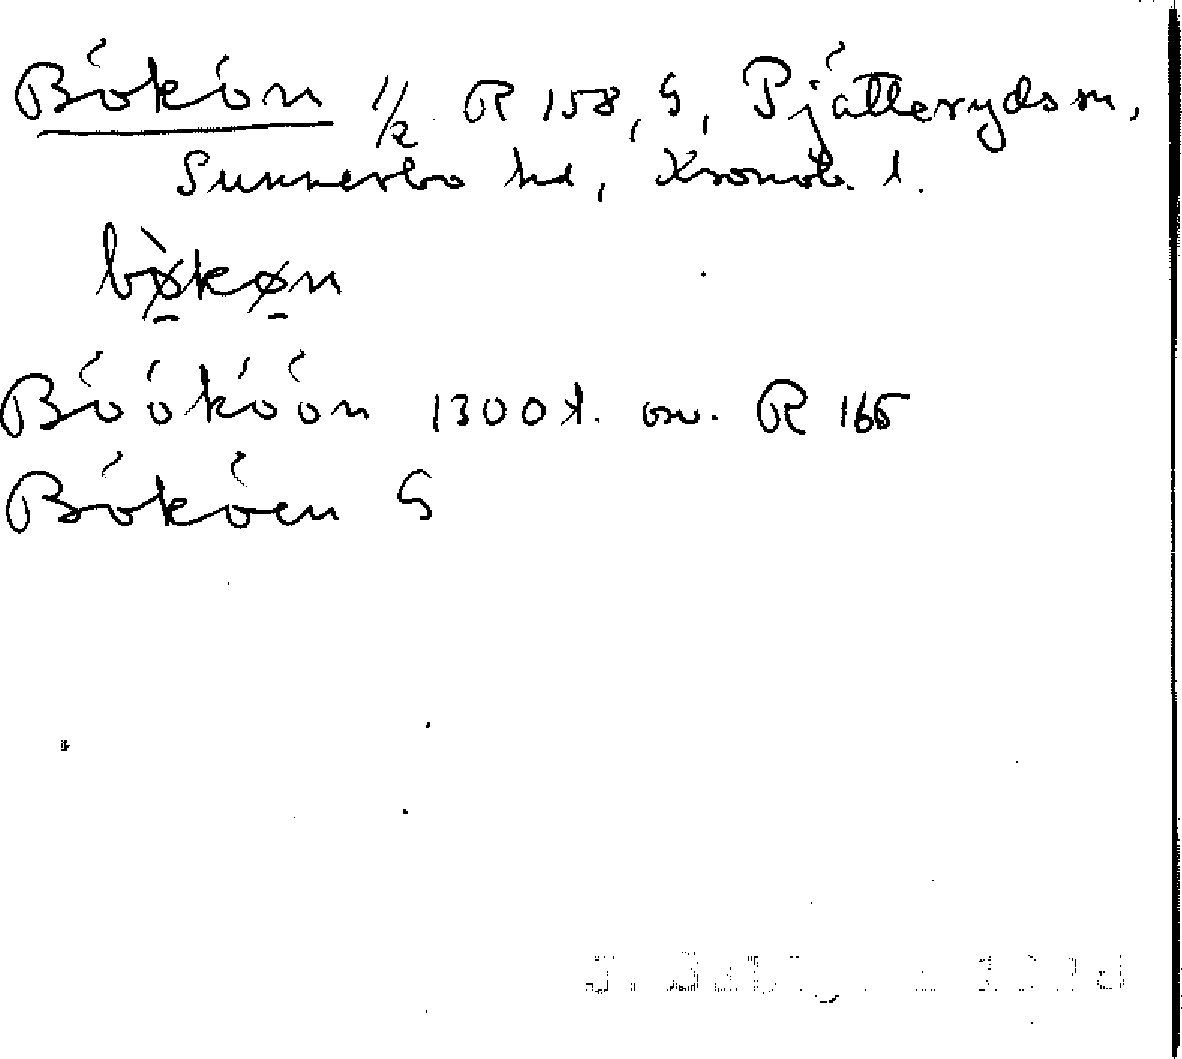 Bökön 1/2 R 158, G, Pjätteryds sn,
Sunnerbo hd, Kronob. l.
bø̀køn
Böököön 1300 t. ow. R 165
Bököen G